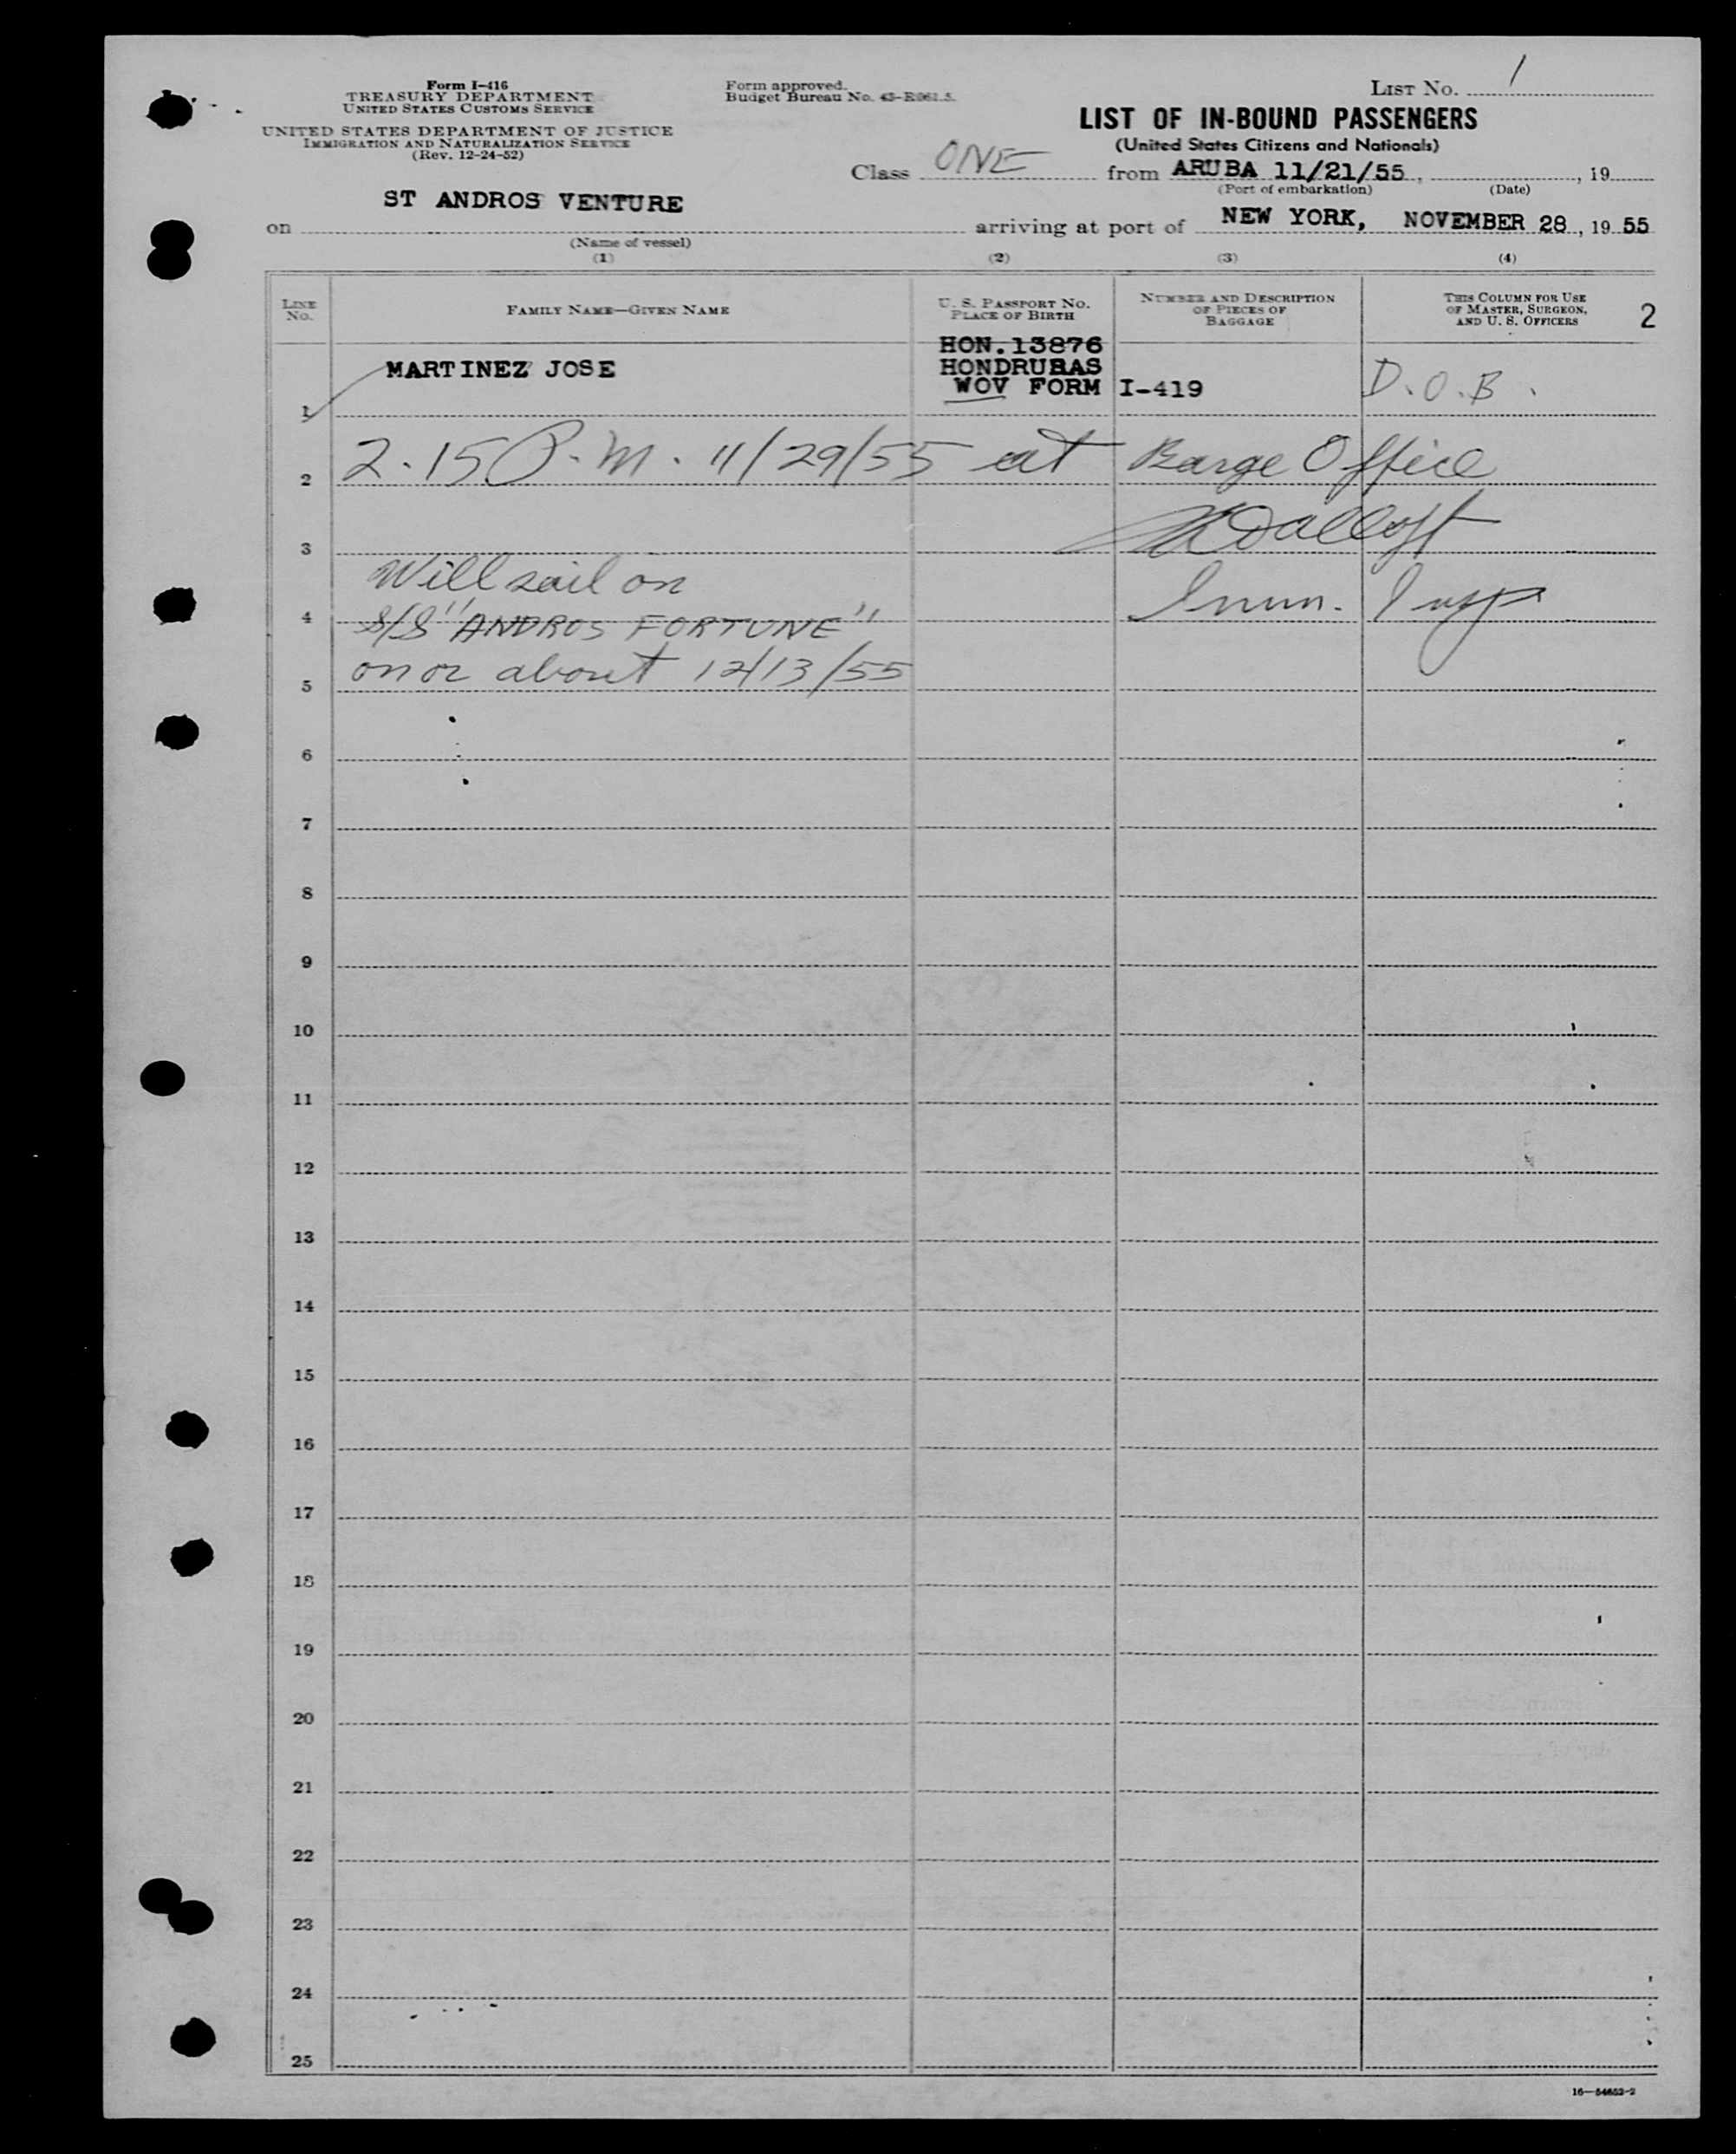 Form I-416
TREASURY DEPARTMENT
UNITED STATES CUSTOMS SERVICE
UNITED STATES DEPARTMENT OF JUSTICE
IMMIGRATION AND NATURALIZATION SERVICE
(Rev. 12-24-52)
Form approved.
Budget Bureau No.
LIST No. 1
LIST OF IN-BOUND PASSENGERS
(United States Citizens and Nationals)
Class ONE from ARUBA 11/21/55, , 19
(Port of embarkation) (Date)
on ST ANDROS VENTURE arriving at port of NEW YORK, NOVEMBER 28, 1955
(Name of vessel)
(1) (2) (3) (4)
LINE No. FAMILY NAME—GIVEN NAME U. S. PASSPORT No. PLACE OF BIRTH NUMBER AND DESCRIPTION OF PIECES OF BAGGAGE THIS COLUMN FOR USE OF MASTER, SURGEON, AND U. S. OFFICERS 2
HON.13876
MARTINEZ JOSE HONDRUBAS
WOV FORM I-419 D.O.B.
1
2 2.15 P.M. 11/29/55 at Barge Office
3
Will sail on Imm. Insp
4 S/S "ANDROS FORTUNE"
5 on or about 12/13/55
6
7
8
9
10
11
12
13
14
15
16
17
18
19
20
21
22
23
24
25
16—54652-2